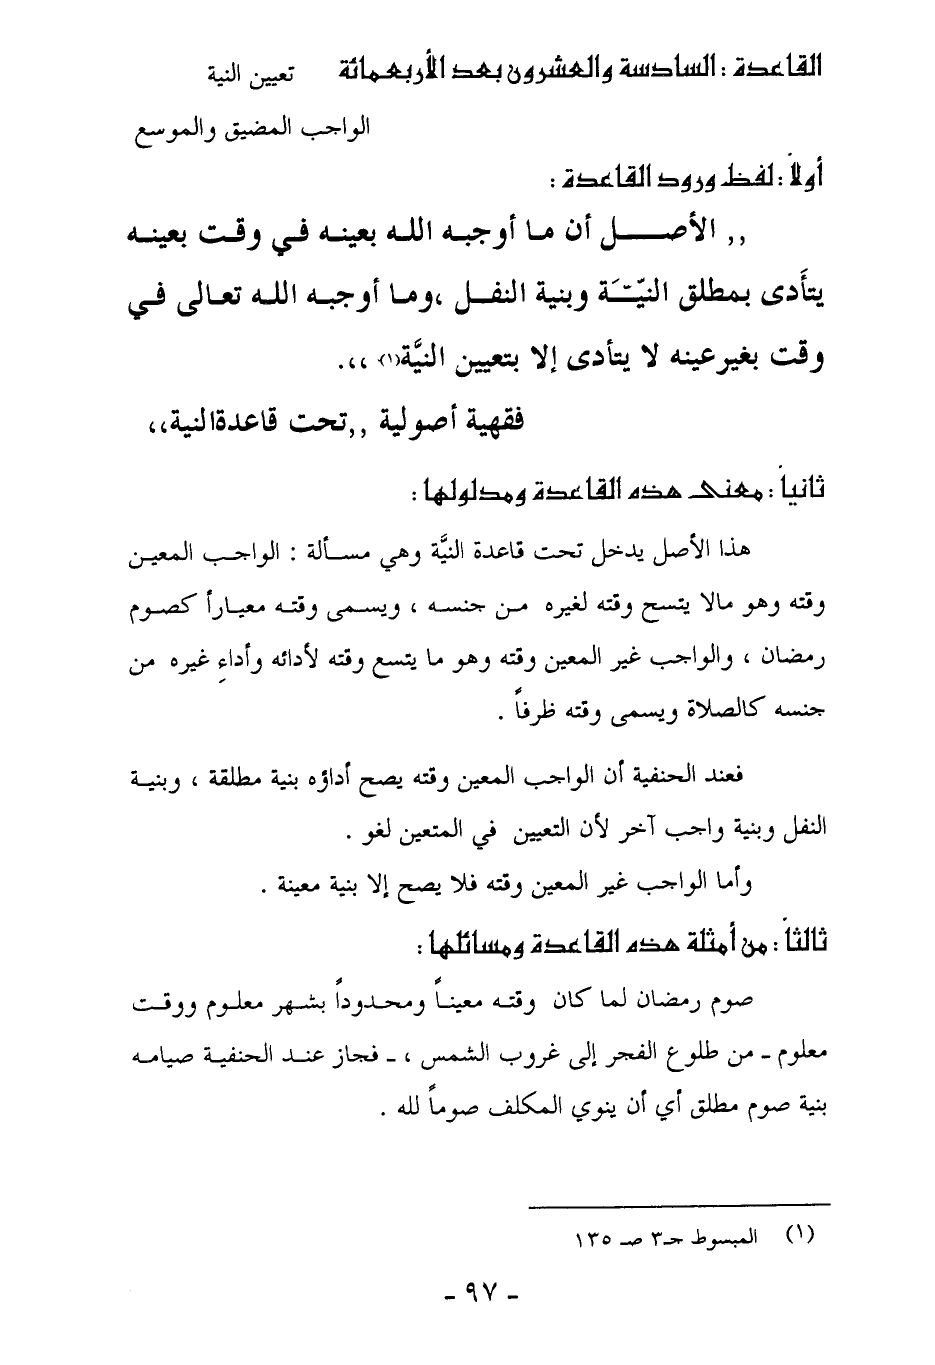 القاعدة : السادسة والعشرون بعد الأربعمائة تعيين النية
الواجب المضيق والموسع
أولاً : لفظ ورود القاعدة :
,, الأصــــل أن ما أوجبه الله بعينه في وقت بعينه
يتأَدى بمطلق النيّــَة وبنية النفل ،وما أوجبه الله تعالى في
وقت بغيرعينه لا يتأدى إلا بتعيين النيَّة(١) ،،.
فقهية أصولية ,,تحت قاعدةالنية،،
ثانياً : معنى هذه القاعدة ومدلولها :
هذا الأصل يدخل تحت قاعدة النيَّة وهي مسألة : الواجب المعين
وقته وهو مالا يتسع وقته لغيره من جنسه ، ويسمى وقته معياراً كصوم
رمضان ، والواجب غير المعين وقته وهو ما يتسع وقته لأدائه وأداءِ غيره من
جنسه كالصلاة ويسمى وقته ظرفاً .
فعند الحنفية أن الواجب المعين وقته يصح أداؤه بنية مطلقة ، وبنية
النفل وبنية واجب آخر لأن التعيين في المتعين لغو .
وأما الواجب غير المعين وقته فلا يصح إلا بنية معينة .
ثالثاً : من أمثلة هذه القاعدة ومسائلها :
صوم رمضان لما كان وقته معيناً ومحدوداً بشهر معلوم ووقت
معلوم ـ من طلوع الفجر إلى غروب الشمس ، ـ فجاز عند الحنفية صيامه
بنية صوم مطلق أي أن ينوي المكلف صوماً لله .
(١) المبسوط حـ٣ صـ ١٣٥
- ٩٧ -